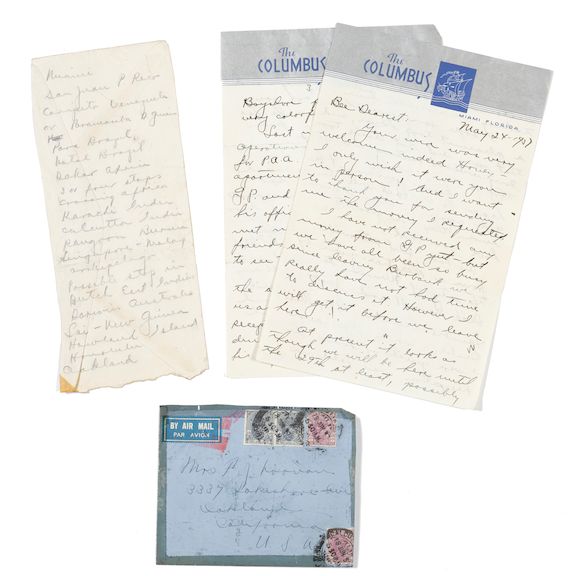 Miami
San Juan P Rico
or Paramaribo D. Guiana
Para Brazil
Natal Brazil
Dakar Africa
3 or four stops
crossing africa
Karachi India
calcutta India
Rangoon Burma
Singapore - Malay
archipelago
Possible stop in
Dutch East Indies
Darwin Australia
Lae - New Guinea
Howland Island
Honolulu
Oakland
The
COLUMBUS
3
very color
Last
operations
for PAA
apartment
G.P. and
his offic
met
friends
to see
the
us a
here
Recep
din
hi
The
COLUMBUS
MIAMI FLORIDA
May 24-1937
Bee Dearest:
Your wire was very
welcome indeed Honey -
I only wish it were you
in person! And I want
to thank you for sending
me the money I requested
I have not received any
money from G.P. yet but
we have all been so busy
since leaving Burbank we
really have not had time
to discuss it. However I
will get it before we leave
here!
At present it looks as
though we will be here until
the 29th at least, possibly
BY AIR MAIL
PAR AVION
Mrs F. J. Noonan
3337 Lakeshore Ave
Oakland
California
U.S.A